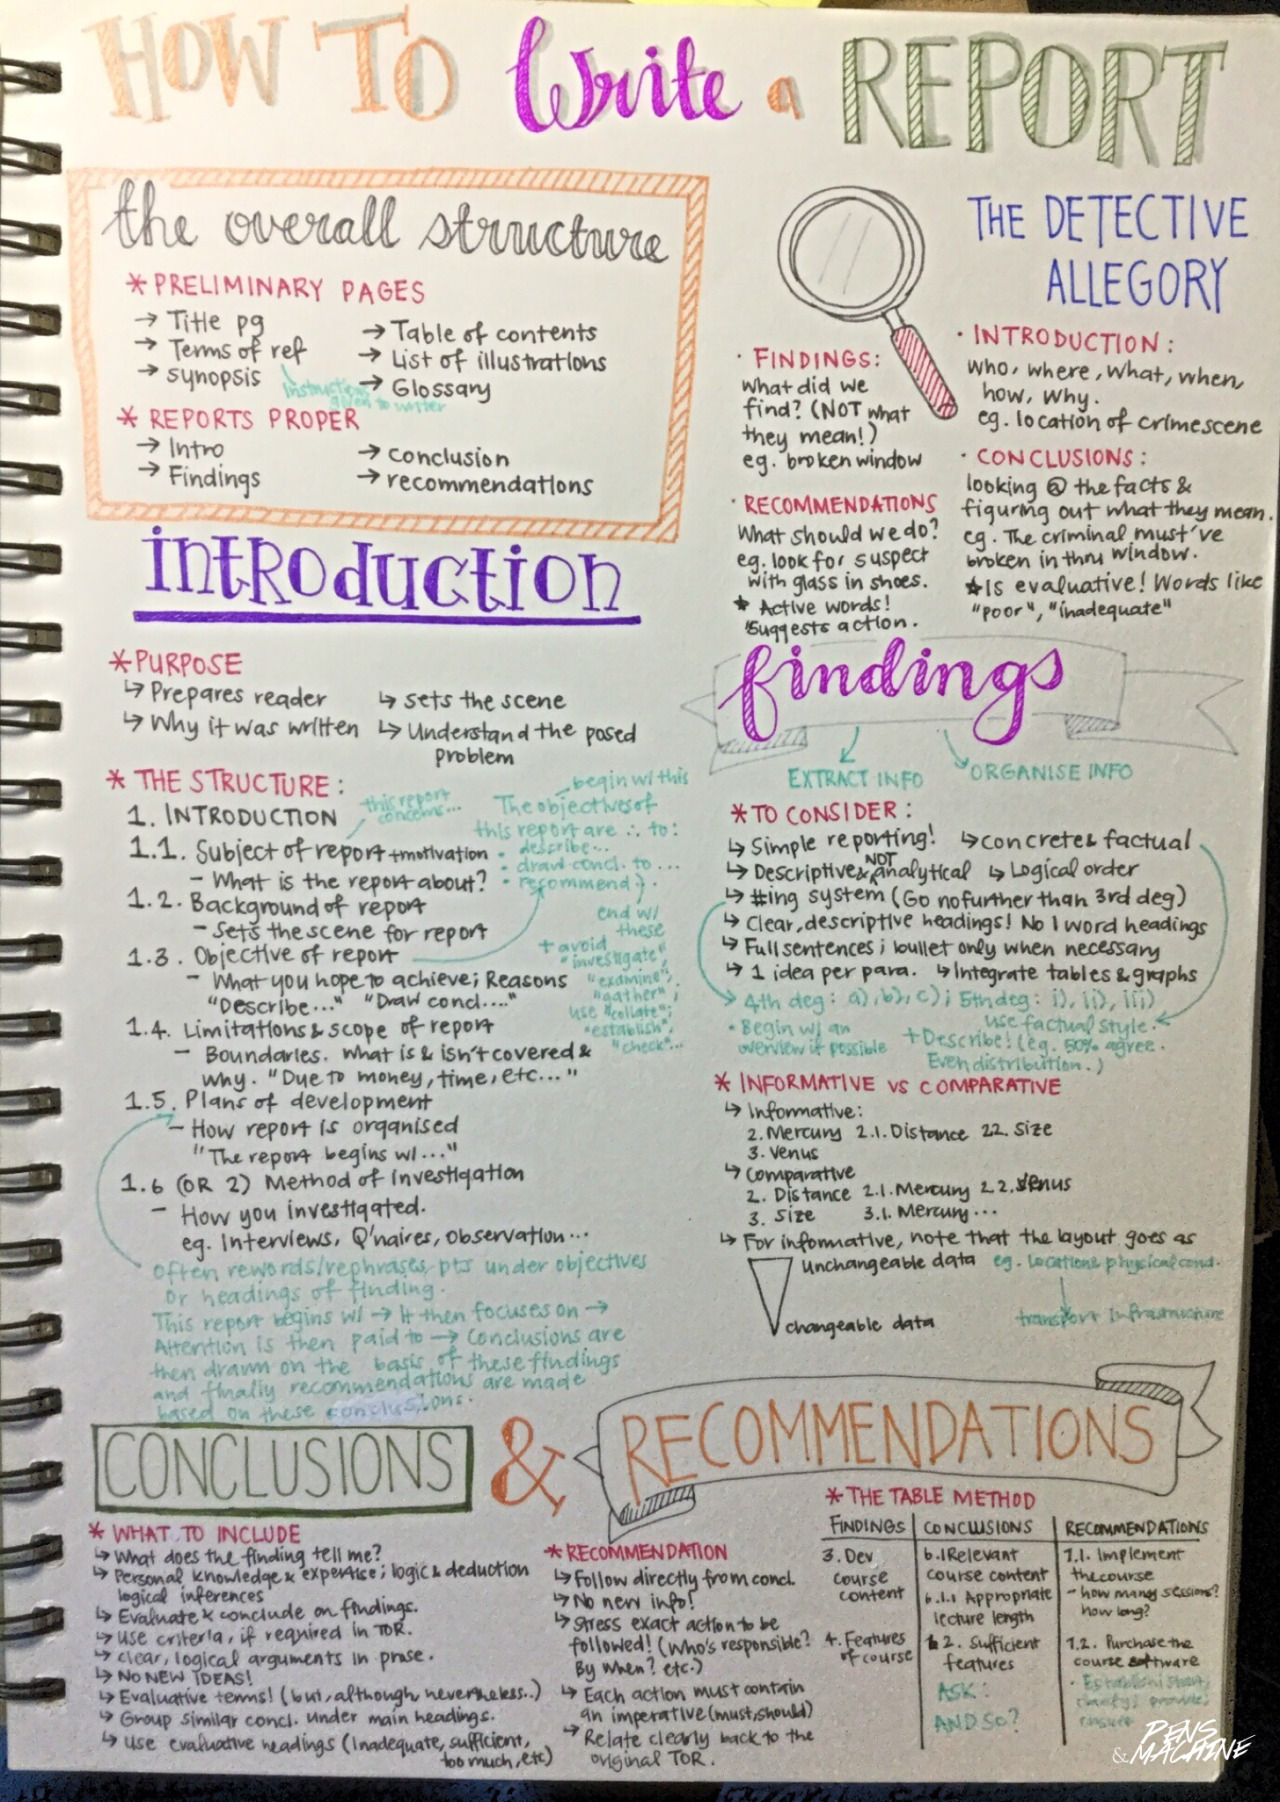 HOW TO Write a REPORT
the overall structure
* PRELIMINARY PAGES
→ Title pg
→ Terms of ref
→ synopsis
instructions given to writer
→ Table of contents
→ List of illustrations
→ Glossary
* REPORTS PROPER
→ Intro
→ Findings
→ conclusion
→ recommendations
THE DETECTIVE
ALLEGORY
· INTRODUCTION:
who, where, what, when,
how, why.
eg. location of crimescene
· FINDINGS:
what did we
find? (NOT what
they mean!)
eg. broken window
· CONCLUSIONS:
looking @ the facts &
figuring out what they mean.
eg. The criminal must've
broken in thru window.
★ Is evaluative! Words like
"poor", "inadequate"
· RECOMMENDATIONS
What should we do?
eg. look for suspect
with glass in shoes.
★ Active words!
Suggests action.
introduction
* PURPOSE
↳ Prepares reader
↳ Why it was written
↳ sets the scene
↳ Understand the posed
problem
* THE STRUCTURE:
1. INTRODUCTION
this report
concerns...
1.1. Subject of report + motivation
- What is the report about?
1.2. Background of report
- Sets the scene for report
1.3. Objective of report
- What you hope to achieve; Reasons
"Describe..." "Draw concl...."
1.4. Limitations & scope of report
- Boundaries. What is & isn't covered &
why. "Due to money, time, etc..."
1.5. Plans of development
- How report is organised
"The report begins w/..."
1.6 (OR 2) Method of investigation
- How you investigated.
eg. Interviews, Q'naires, observation...
begin w/ this
The objectives of
this report are ∴ to:
· describe...
· draw concl. to ...
· recommend...
end w/
these
+ avoid
"investigate",
"examine",
"gather";
use "collate";
"establish",
"check"...
Often rewords/rephrases pts under objectives
or headings of finding.
This report begins w/ → It then focuses on →
Attention is then paid to → Conclusions are
then drawn on the basis of these findings
and finally recommendations are made
based on these conclusions.
findings
EXTRACT INFO
ORGANISE INFO
* TO CONSIDER:
↳ Simple reporting! ↳ concrete & factual
↳ Descriptive & NOT analytical ↳ Logical order
↳ #ing system (Go no further than 3rd deg)
↳ Clear, descriptive headings! No 1 word headings
↳ Full sentences; bullet only when necessary
↳ 1 idea per para. ↳ Integrate tables & graphs
4th deg: a), b), c); 5th deg: i), ii), iii)
· Begin w/ an
overview if possible
use factual style.
+ Describe! (eg. 50% agree.
Even distribution.)
* INFORMATIVE vs COMPARATIVE
↳ Informative:
2. Mercury 2.1. Distance 2.2. Size
3. Venus
↳ Comparative
2. Distance 2.1. Mercury 2.2. Venus
3. Size 3.1. Mercury...
↳ For informative, note that the layout goes as
unchangeable data eg. Location & physical cond.
transport infrastructure
changeable data
CONCLUSIONS & RECOMMENDATIONS
* WHAT TO INCLUDE
↳ What does the finding tell me?
↳ Personal knowledge & expertise; logic & deduction
logical inferences
↳ Evaluate & conclude on findings.
↳ Use criteria, if required in TOR.
↳ clear, logical arguments in prose.
↳ NO NEW IDEAS!
↳ Evaluative terms! (but, although, nevertheless..)
↳ Group similar concl. under main headings.
↳ Use evaluative headings (Inadequate, sufficient,
too much, etc)
* RECOMMENDATION
↳ Follow directly from concl.
↳ No new info!
↳ Stress exact action to be
followed! (Who's responsible?
By when? etc.)
↳ Each action must contain
an imperative (must, should)
↳ Relate clearly back to the
original TOR.
* THE TABLE METHOD
FINDINGS | CONCLUSIONS | RECOMMENDATIONS
3. Dev
course
content
4. Features
of course
6.1 Relevant
course content
6.1.1 Appropriate
lecture length
2. Sufficient
features
ASK:
AND SO?
7.1. Implement
the course
- how many sessions?
how long?
7.2. Purchase the
course software
PENS
& MACHINE